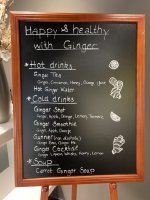 Happy & healthy
with Ginger
Hot drinks
Ginger Tea
Ginger, Cinnamon, Honey, Orange
Hot Ginger Water
Cold drinks
Ginger Shot
Ginger, Apple, Orange, Lemon, Turmeric
Ginger Smoothie
Ginger, Apple, Orange
Gunner (non alcoholic)
Ginger Beer, Ginger Ale
Ginger Cocktail
Ginger, Liquor, Whisky, Honey, Lemon
Soup
Carrot Ginger Soup